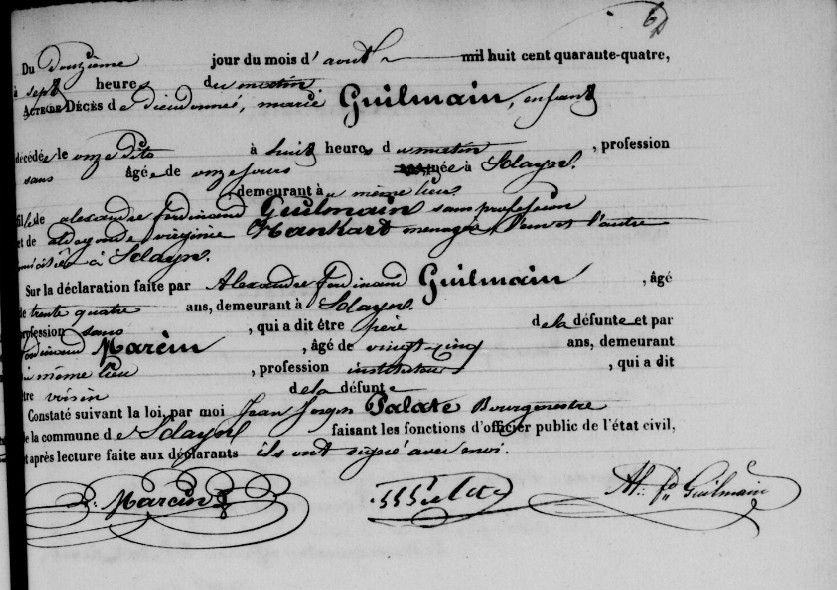 6
Du douzième jour du mois d'août mil huit cent quarante-quatre,
à sept heures du matin
ACTE DE DÉCÈS de dieudonnée, marie Guilmain, enfant
décédée le onze dito à huit heures du matin, profession
sans âgée de onze jours née à Sclayn.
demeurant à u même lieu
fille de alexandre ferdinand Guilmain sans profession
et de aldegonde virginie Hankart menagère l'un et l'autre
domiciliés à Sclayn.
Sur la déclaration faite par Alexandre Ferdinand Guilmain, âgé
de trente quatre ans, demeurant à Sclayn.
profession sans, qui a dit être père de la défunte et par
ferdinand Marcin, âgé de vingt-cinq ans, demeurant
au même lieu, profession instituteur, qui a dit
être voisin de la défunte
Constaté suivant la loi, par moi Jean Joseph Palate Bourgmestre
de la commune de Sclayn faisant les fonctions d'officier public de l'état civil,
et après lecture faite aux déclarants ils ont signé avec moi.
F. Marcin JJ Palate Al: fd Guilmain